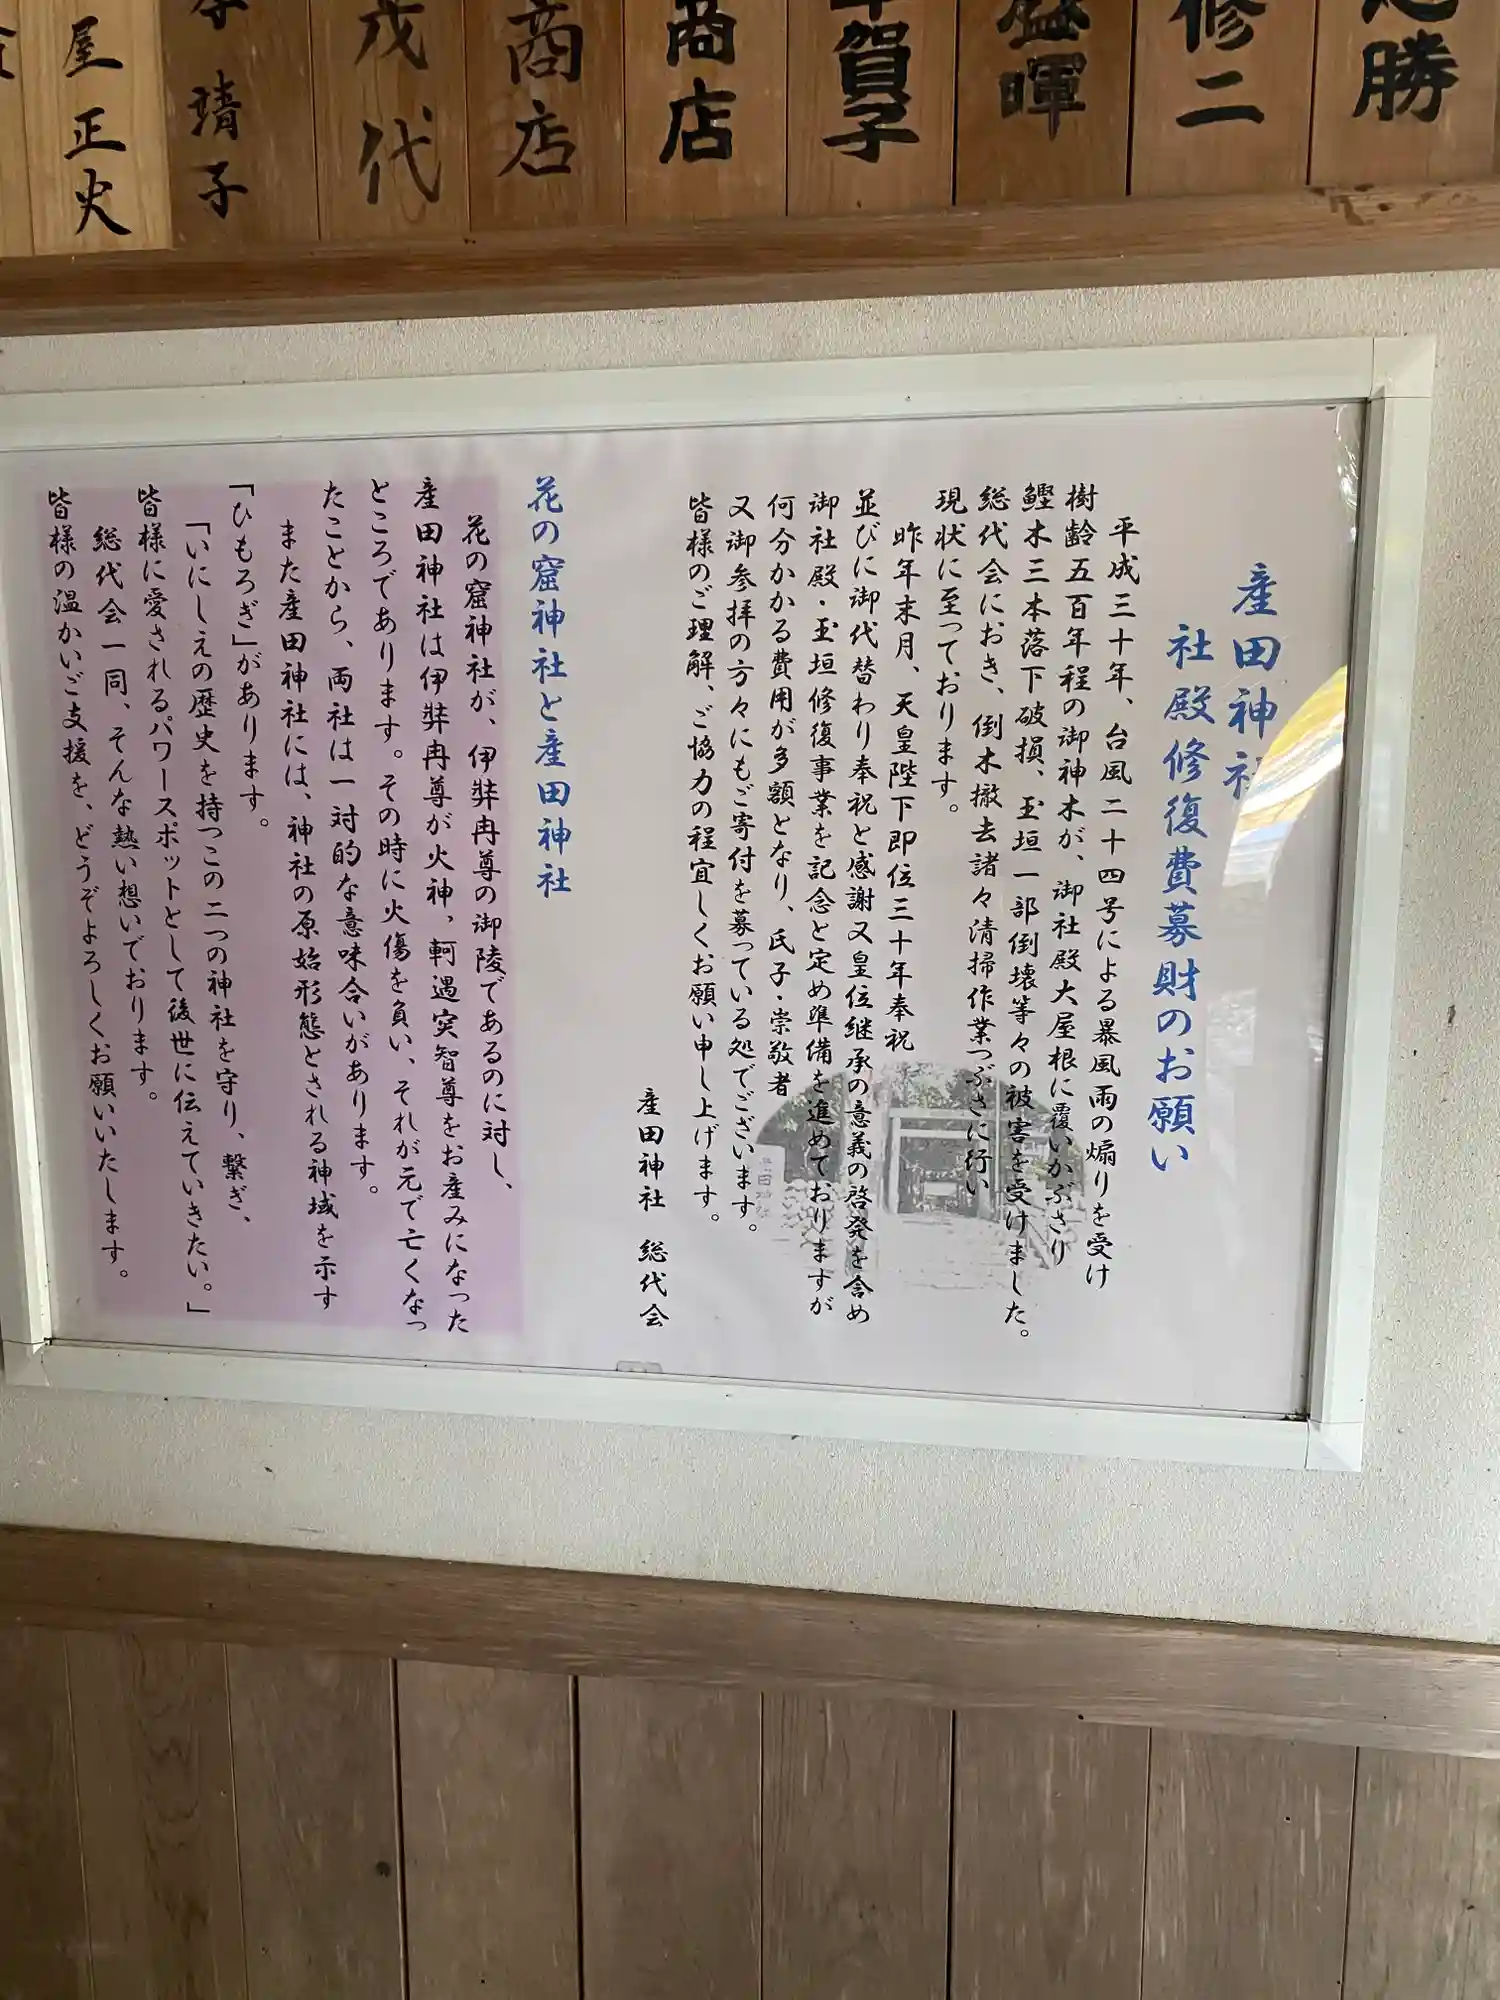 勝
修二
盛暉
賀子
商店
商店
茂代
靖子
屋正火
産田神社
社殿修復費募財のお願い
平成三十年、台風二十四号による暴風雨の煽りを受け
樹齢五百年程の御神木が、御社殿大屋根に覆いかぶさり
鰹木三本落下破損、玉垣一部倒壊等々の被害を受けました。
総代会におき、倒木撤去諸々清掃作業つぶさに行い
現状に至っております。
昨年末月、天皇陛下即位三十年奉祝
並びに御代替わり奉祝と感謝又皇位継承の意義の啓発を含め
御社殿・玉垣修復事業を記念と定め準備を進めておりますが
何分かかる費用が多額となり、氏子・崇敬者
又御参拝の方々にもご寄付を募っている処でございます。
皆様のご理解、ご協力の程宜しくお願い申し上げます。
産田神社 総代会
花の窟神社と産田神社
花の窟神社が、伊弉冉尊の御陵であるのに対し、
産田神社は伊弉冉尊が火神，軻遇突智尊をお産みになった
ところであります。その時に火傷を負い、それが元で亡くなっ
たことから、両社は一対的な意味合いがあります。
また産田神社には、神社の原始形態とされる神域を示す
「ひもろぎ」があります。
「いにしえの歴史を持つこの二つの神社を守り、繋ぎ、
皆様に愛されるパワースポットとして後世に伝えていきたい。」
総代会一同、そんな熱い想いでおります。
皆様の温かいご支援を、どうぞよろしくお願いいたします。